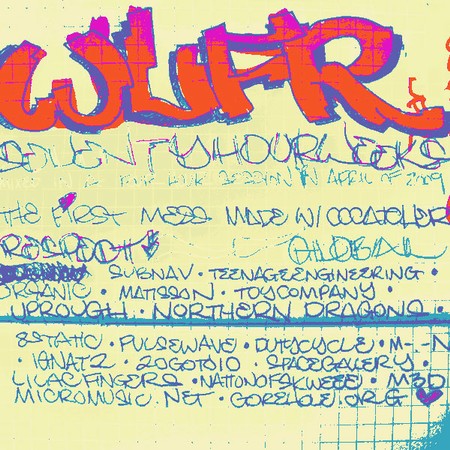 WLFR
SEVENTYHOURWEEKS
SESSION IN APRIL OF 2009
THE FIRST MESS MADE W/
RESPECT GLOBAL
SUBNAV · TEENAGEENGINEERING ·
ORGANIC · MATISSON · TOYCOMPANY ·
UPROUGH · NORTHERN DRAGONS ·
8STATIC · PULSEWAVE · DUTYCYCLE · M--N
· IGNATZ · 20GOTO10 · SPACEGALLERY ·
LILACFINGERS · NATIONOFSKWEEE · M3D
MICROMUSIC.NET · GOREHOLE.ORG